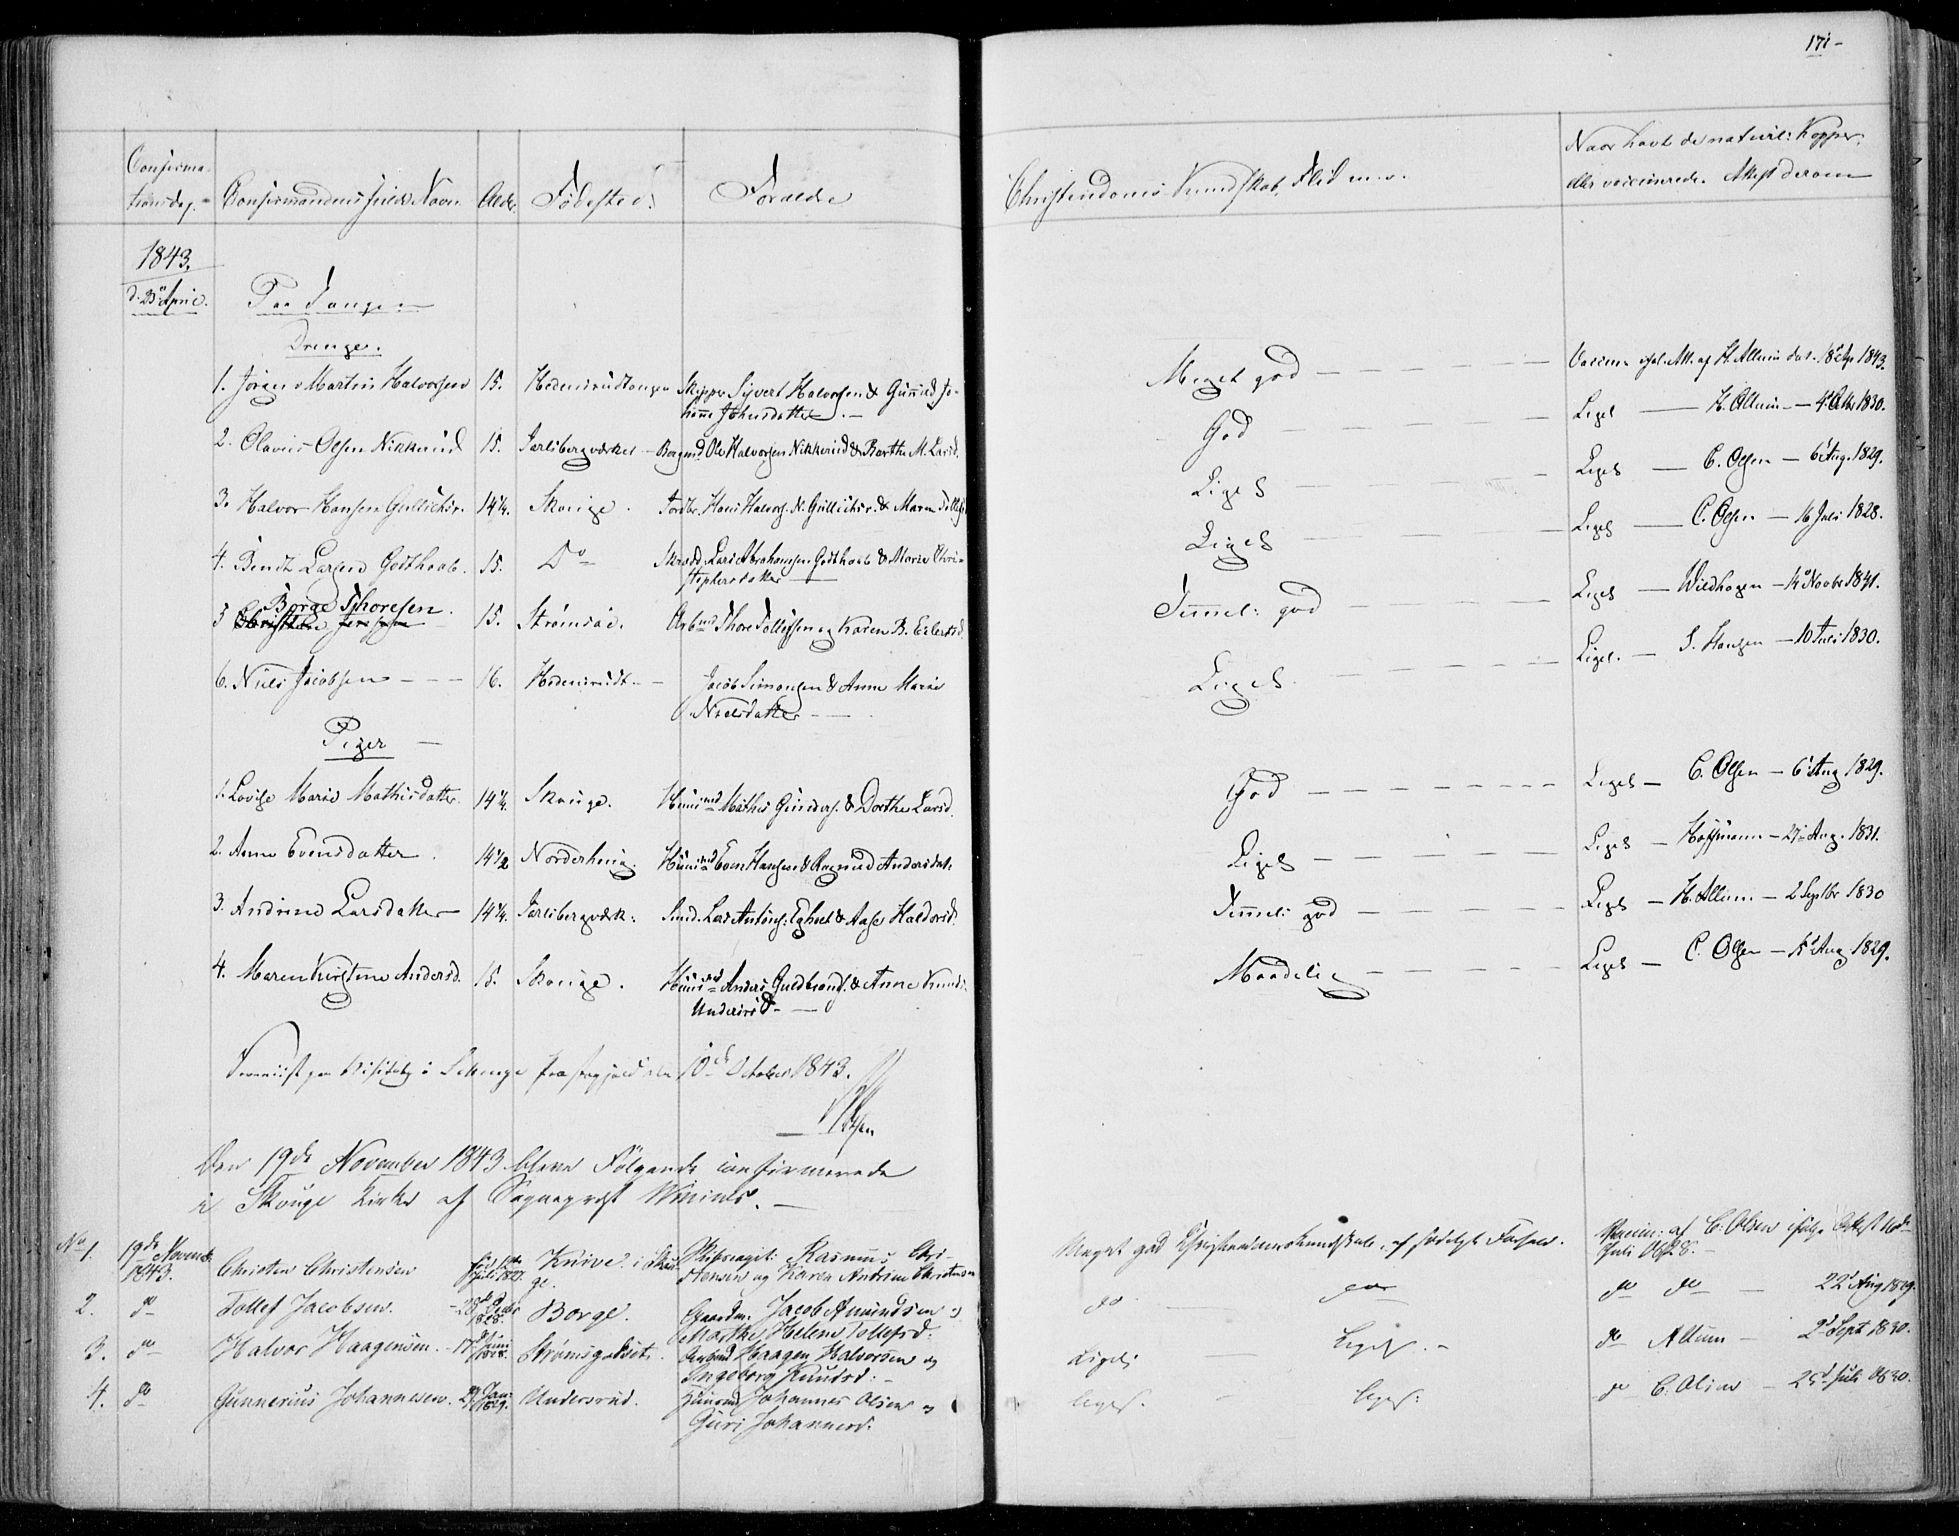 171-
Confirma-
tionsdag. Confirmandens fulde Navn. Alder. Fødested. Forældre Christendoms Kundskab, Flid m.v. Naar havt de naturl: Kopper,
eller vaccinerede. Attest derom
1843.
d. 23 April. Paa Tangen
Drenge.
1. Jørgen Martin Halvorsen 15. Hedensrudtangen Skipper Syvert Halvorsen & Gunild Jo-
hanne Johnsdatter. Meget god Vaccin. iføl. Att. af H. Allum dat. 18 Apr 1843.
2. Olavus Olsen Nikkerud 15. Jarlsbergværket Bergmd Ole Halvorsen Nikkerud & Barthe M. Larsd. God Ligel H. Allum 4 Octbr 1830.
3. Halvor Hansen Gullichsr. 14¼. Skouge. Hans Halvors. N. Gullichsr. & Maren Tollefs Ligel Ligel C. Olsen 6 Aug. 1829.
4. Bendt Larsen Godthaab. 15. Do Lars Abrahamsen Godthaab & Maria Chri-
stophersdatter Ligel Ligel C. Olsen 16 Juli 1828.
Børge Thoresen.
5 15. Strømsøe. Arbmd Thore Tollefsen og Karen B. Eilertsd. Temmel: god Ligel Wildhagen 14 Novbr 1841.
6. Niels Jacobsen 16. Hedensrudt. Jacob Simonsen & Anne Marie
Nielsdatter Ligel Ligel. S. Hansen 10 Juli 1830.
Piger
1. Lovise Marie Mathisdatter. 14¼. Skouge. Huusmd Mathis Gunders. & Dorthe Larsd. God Ligel C. Olsen 6 Aug 1829.
2. Anne Evensdatter 14½ Norderhoug. Huusmd Even Hansen & Ragnild Andersdat: Ligel Ligel Hoffmann 27 Aug. 1831.
3. Andrine Larsdatter 14¼. Jarlsbergværk: Smd. Lars Antons: Egholt & Aase Haldorsd. Temmel: god Ligel H. Allum 2 Septbr 1830
4. Maren Kirstine Andersd. 15. Skouge. Huusmd Anders Guldbrands. & Anne Knuds.
Undersrud. Maadelig Ligel C. Olsen 15 Aug 1829.
Foreviist paa Visitats i Skouge Præstegjeld den 10de October 1843.
Den 19de November 1843 bleve Følgende confirmerede
i Skouge Kirke af Sognepræst Winsnes.
No 1. 19de Novembr
1843. Christen Christensen Juli 1827. Knive i Skou-
ge. Skibscapit: Rasmus Chri-
stensen og Karen Andrine Christensen Meget god Christendomskundskab, af sædelig Forhold. Vaccin: af C. Olsen ifølge Attest 16de
Juli 1828.
2. do Tollef Jacobsen. 28 Octbr
1828. Borge. Gaardm. Jacob Amundsen og
Marthe Helene Tollefsd: do do do do 22 Aug 1829.
3. do Halvor Haagensen. 17 Juni
1828. Strømsgodset. Arbmd Haagen Halvorsen og
Ingeborg Knudsd: Ligel: Ligel. do Allum 2d Sept 1830.
4. do Gunnerius Johannesen. 29 Jan:
1829. Undersrud. Huusmd Johannes Olsen og
Guri Johannesd. Ligel. Ligel: do C. Olsen 25d Juli 1830.